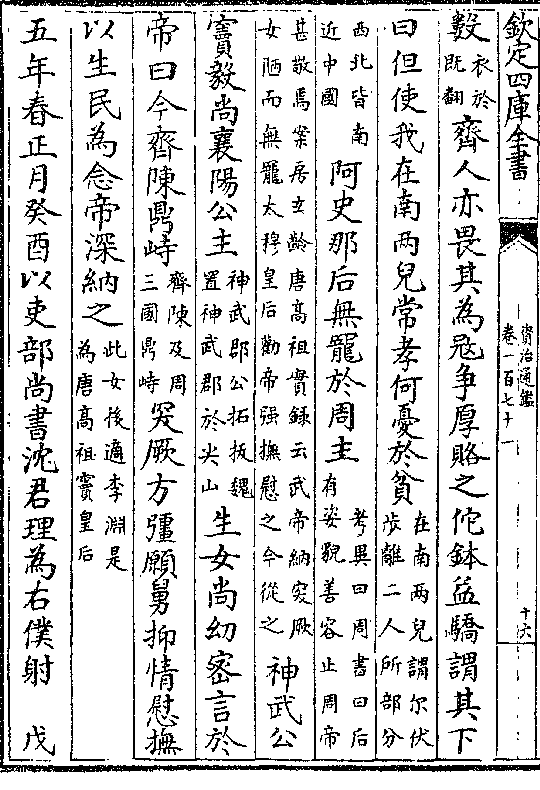 欽定四庫全書
資治通鑑
卷一百七十一
十六
數衣於既翻齊人亦畏其為寇争厚賂之佗鉢益驕謂其下
曰但使我在南两兒常孝何憂於貧在南两兒謂尔伏步離二人所部分
西北皆南近中國阿史那后無寵於周主考異曰周書曰后有姿貌善容止周帝
甚敬焉案房玄齡唐高祖實録云武帝納突厥女陋而無寵太穆皇后勸帝强撫慰之今從之神武公
竇毅尚襄陽公主神武郡公拓拔魏置神武郡於尖山生女尚幼密言於
帝曰今齊陳鼎峙齊陳及周三國鼎峙突厥方彊願舅抑情慰撫
以生民為念帝深納之此女後適李淵是為唐高祖竇皇后
五年春正月癸酉以吏部尚書沈君理為右僕射 戊